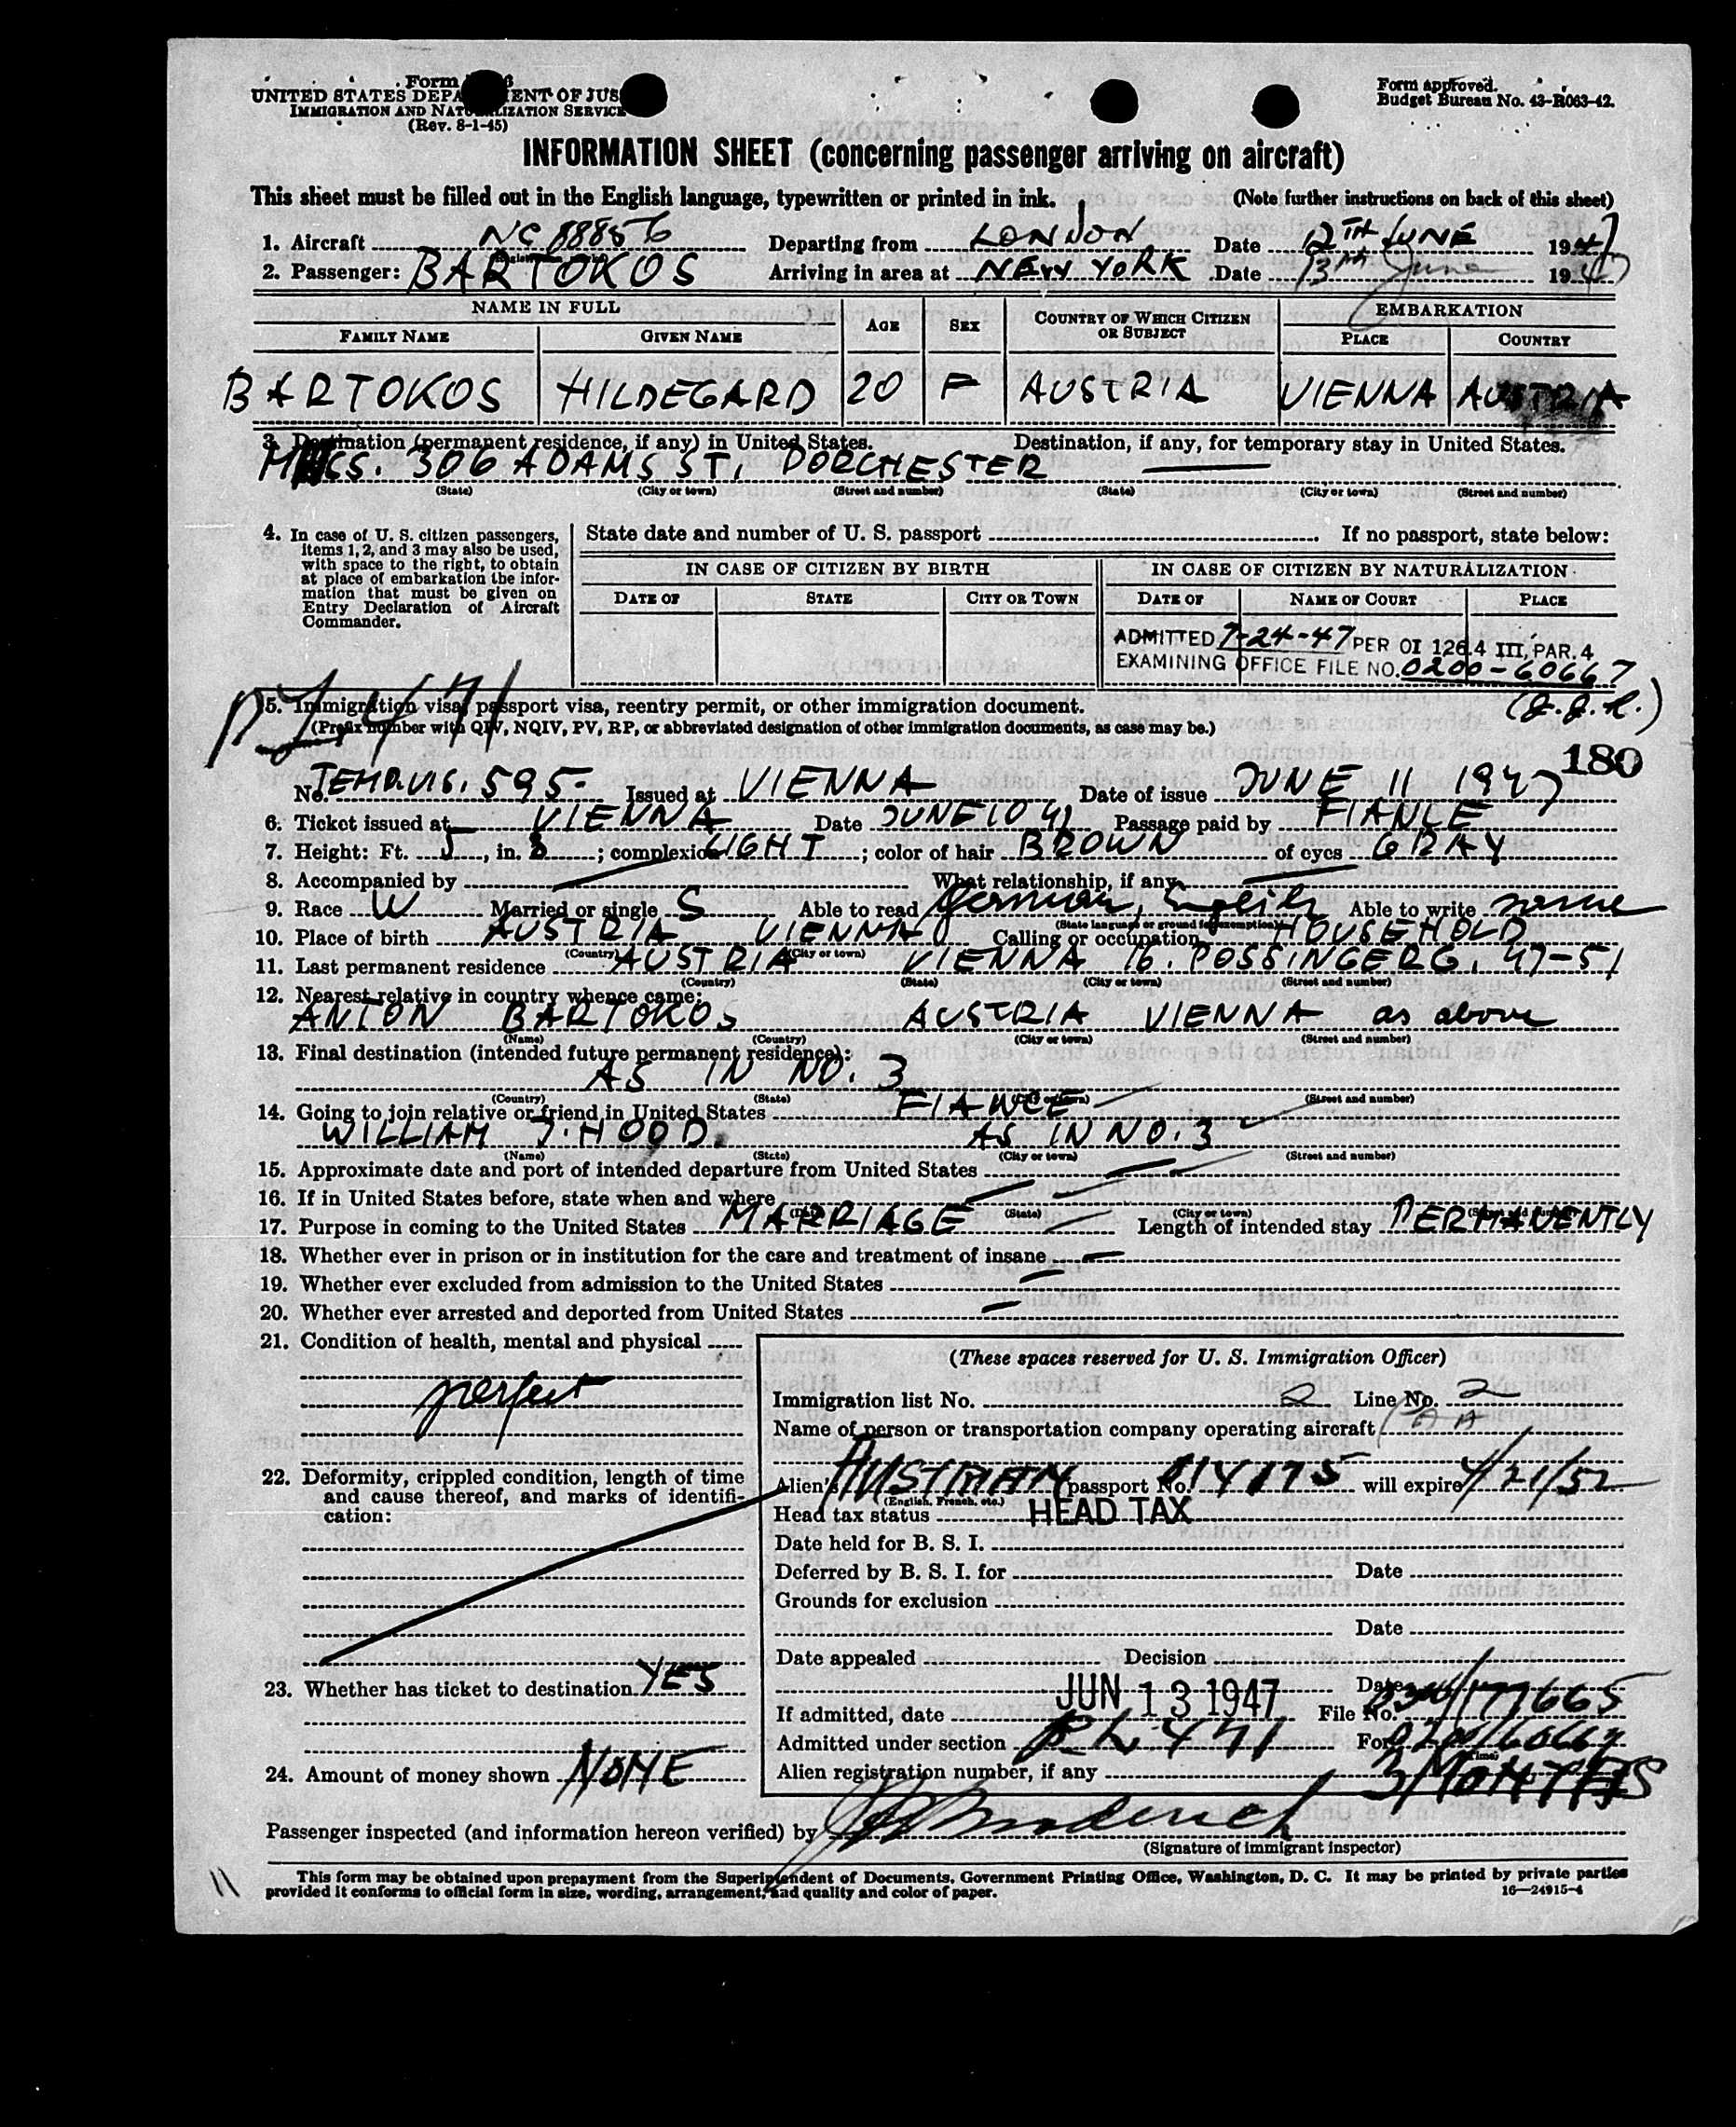 Form
UNITED STATES DEPA ENT OF JUS
IMMIGRATION AND NATURALIZATION SERVICE
(Rev. 8-1-45)
Form approved.
Budget Bureau No. 43-R063-42.
INFORMATION SHEET (concerning passenger arriving on aircraft)
This sheet must be filled out in the English language, typewritten or printed in ink. (Note further instructions on back of this sheet)
1. Aircraft NC 88856 Departing from LONDON Date 12TH JUNE 1947
2. Passenger: BARTOKOS Arriving in area at NEW YORK Date 13th June 1947
NAME IN FULL AGE SEX COUNTRY OF WHICH CITIZEN OR SUBJECT EMBARKATION
FAMILY NAME GIVEN NAME PLACE COUNTRY
BARTOKOS HILDEGARD 20 F AUSTRIA VIENNA AUSTRIA
3. Destination (permanent residence, if any) in United States. Destination, if any, for temporary stay in United States.
306 ADAMS ST, DORCHESTER
(State) (City or town) (Street and number) (State) (City or town) (Street and number)
4. In case of U. S. citizen passengers, items 1, 2, and 3 may also be used, with space to the right, to obtain at place of embarkation the information that must be given on Entry Declaration of Aircraft Commander.
State date and number of U. S. passport If no passport, state below:
IN CASE OF CITIZEN BY BIRTH IN CASE OF CITIZEN BY NATURALIZATION
DATE OF STATE CITY OR TOWN DATE OF NAME OF COURT PLACE
ADMITTED 7-24-47 PER OI 126.4 III, PAR. 4
EXAMINING OFFICE FILE NO. 0200-60667
(J.J.R.)
471
5. Immigration visa, passport visa, reentry permit, or other immigration document.
(Prefix number with QIV, NQIV, PV, RP, or abbreviated designation of other immigration documents, as case may be.)
180
No. TEMP.VIS. 595- Issued at VIENNA Date of issue JUNE 11 1947
6. Ticket issued at VIENNA Date JUNE 10 47 Passage paid by FIANCE
7. Height: Ft. 5, in. 3; complexion LIGHT; color of hair BROWN of eyes GRAY
8. Accompanied by What relationship, if any
9. Race W Married or single S Able to read German, English Able to write same
(State language or ground for exemption)
10. Place of birth AUSTRIA VIENNA Calling or occupation HOUSEHOLD
(Country) (City or town)
11. Last permanent residence AUSTRIA VIENNA 16. POSSINGERG. 47-51
(Country) (State) (City or town) (Street and number)
12. Nearest relative in country whence came:
ANTON BARTOKOS AUSTRIA VIENNA as above
(Name) (Country) (City or town) (Street and number)
13. Final destination (intended future permanent residence):
AS IN NO. 3
(Country) (State) (City or town) (Street and number)
14. Going to join relative or friend in United States FIANCE
WILLIAM J. HOOD. AS IN NO. 3
(Name) (State) (City or town) (Street and number)
15. Approximate date and port of intended departure from United States
16. If in United States before, state when and where
(Date) (State) (City or town) (Street and number)
17. Purpose in coming to the United States MARRIAGE Length of intended stay PERMANENTLY
18. Whether ever in prison or in institution for the care and treatment of insane
19. Whether ever excluded from admission to the United States
20. Whether ever arrested and deported from United States
21. Condition of health, mental and physical
perfect
22. Deformity, crippled condition, length of time and cause thereof, and marks of identification:
23. Whether has ticket to destination YES
24. Amount of money shown NONE
(These spaces reserved for U. S. Immigration Officer)
Immigration list No. 2 Line No. 2
Name of person or transportation company operating aircraft PAA
Alien's AUSTRIAN passport No. 014175 will expire 4/21/52
(English, French, etc.)
Head tax status HEAD TAX
Date held for B. S. I.
Deferred by B. S. I. for Date
Grounds for exclusion
Date
Date appealed Decision
Date
If admitted, date JUN 13 1947 File No. 0300/177665
Admitted under section PL 471 For 0200/60667
(Time)
Alien registration number, if any 3 MONTHS
Passenger inspected (and information hereon verified) by
(Signature of immigrant inspector)
11
This form may be obtained upon prepayment from the Superintendent of Documents, Government Printing Office, Washington, D. C. It may be printed by private parties
provided it conforms to official form in size, wording, arrangement, and quality and color of paper. 16—24915-4